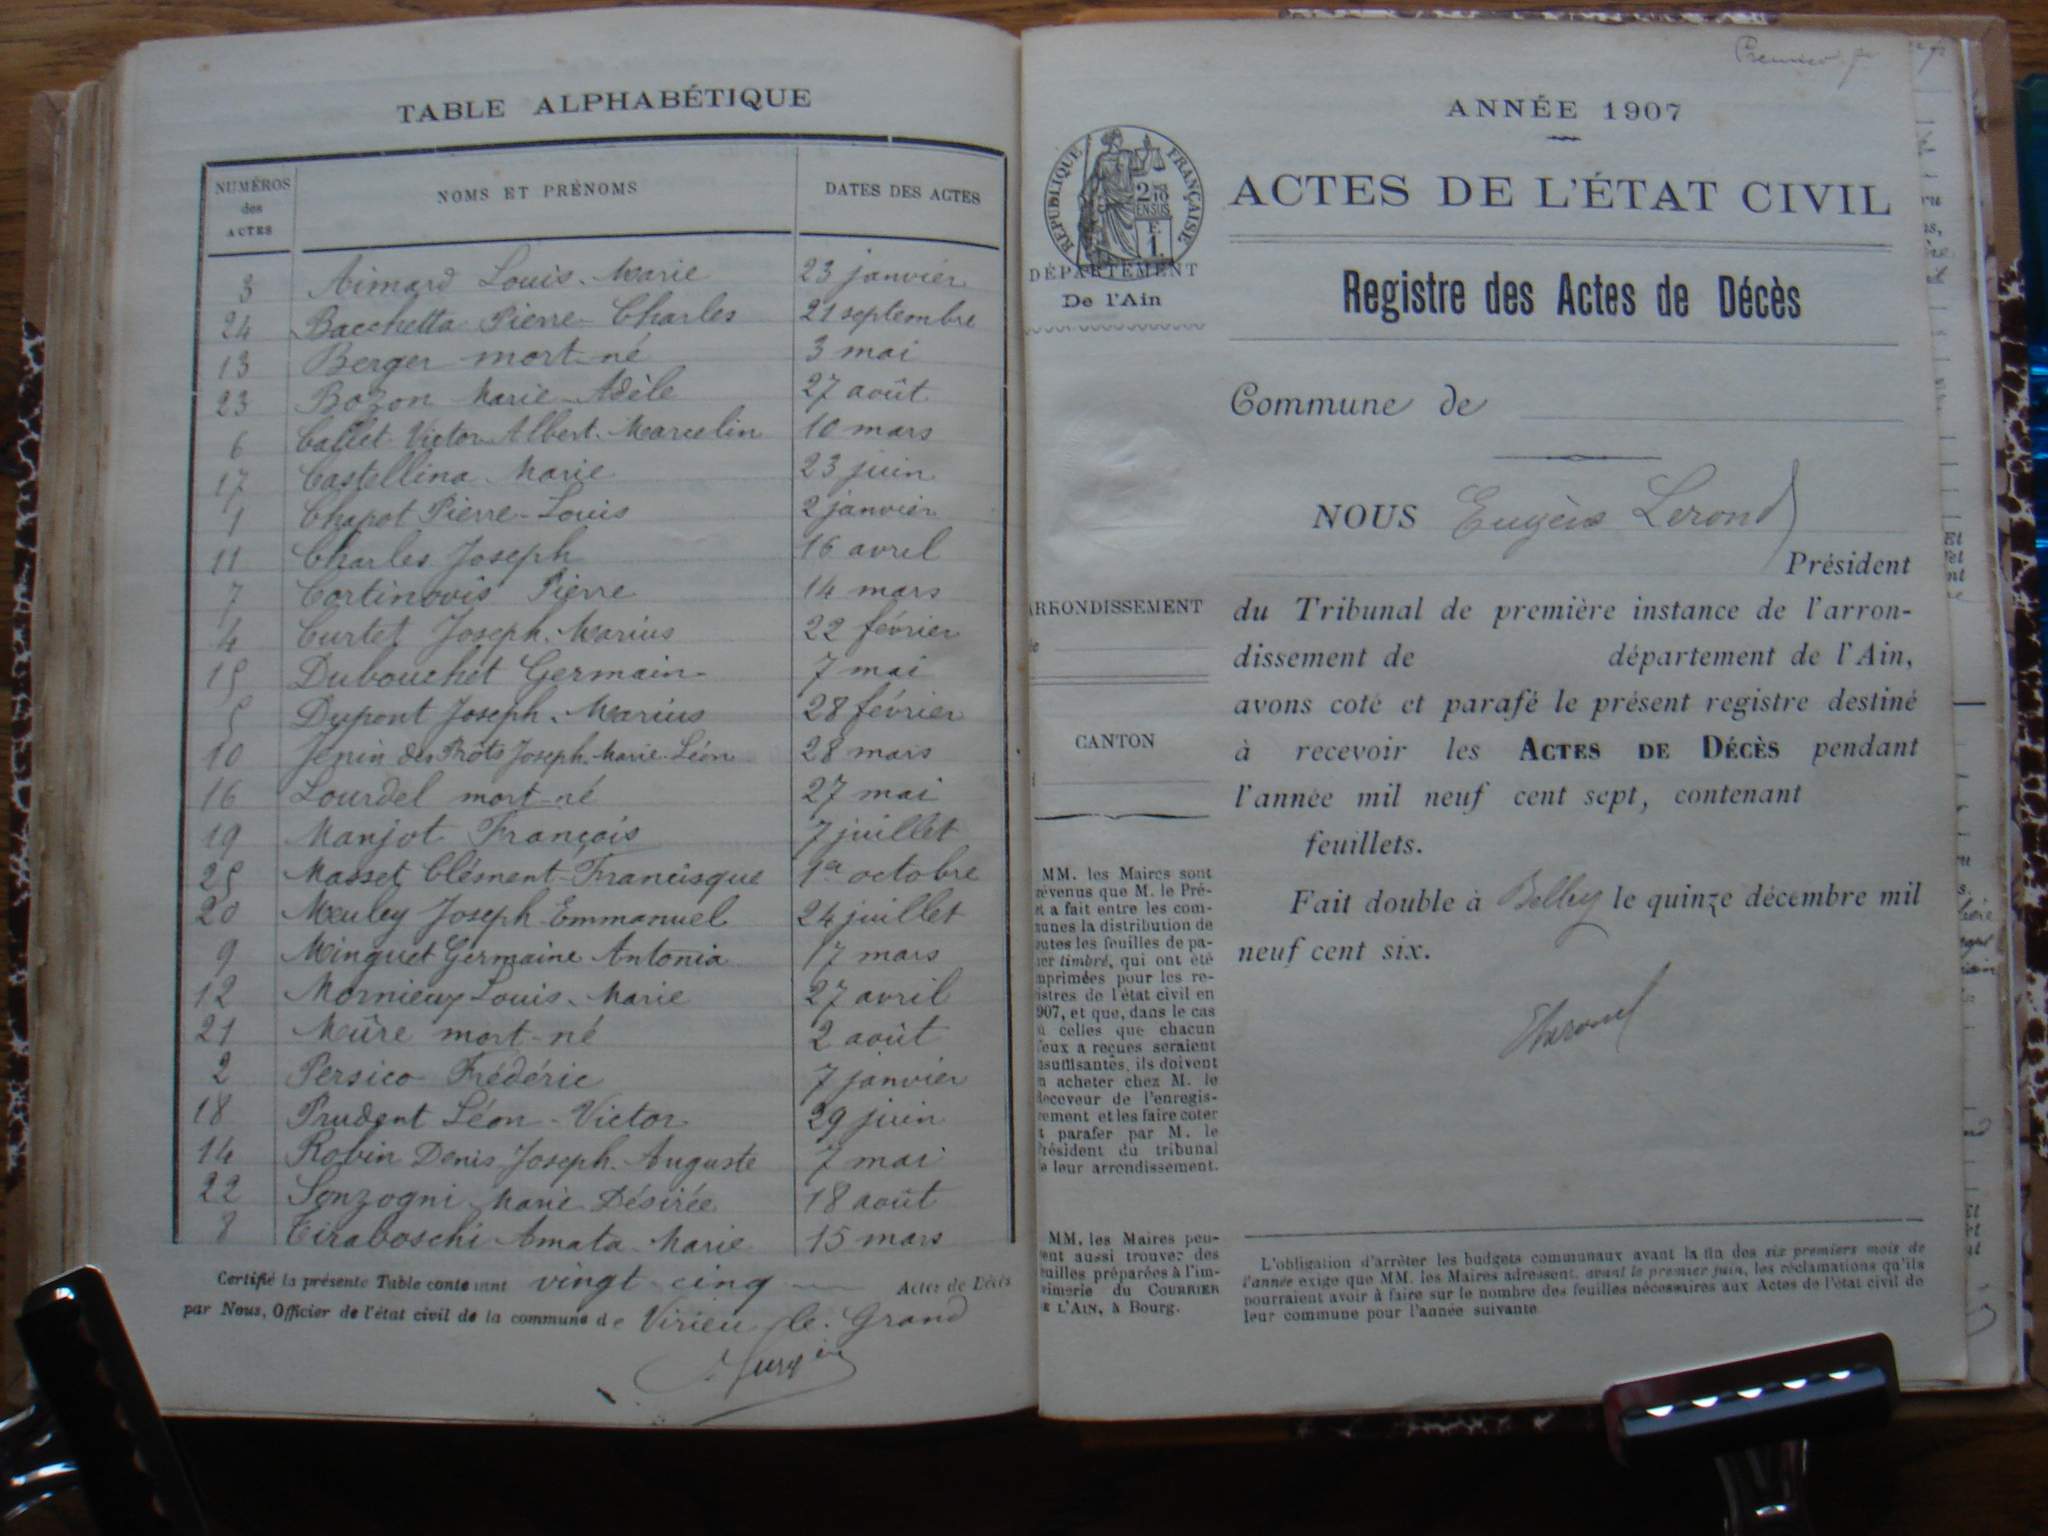 TABLE ALPHABÉTIQUE
NUMÉROS des ACTES NOMS ET PRÉNOMS DATES DES ACTES
3 Aimard Louis-Marie 23 janvier
24 Bacchetta Pierre-Charles 21 septembre
13 Berger mort-né 3 mai
23 Bozon Marie-Adèle 27 août
6 Callet Victor-Albert-Marcelin 10 mars
17 Castellina Marie 23 juin
1 Chapot Pierre-Louis 2 janvier
11 Charles Joseph 16 avril
7 Cortinovis Pierre 14 mars
4 Curtet Joseph-Marius 22 février
15 Dubouchet Germain 7 mai
5 Dupont Joseph-Marius 28 février
10 Jenin des Prôts Joseph-Marie-Léon 28 mars
16 Lourdel mort-né 27 mai
19 Manjot François 7 juillet
25 Masset Clément-Francisque 1er octobre
20 Meuley Joseph-Emmanuel 24 juillet
9 Minguet Germaine Antonia 17 mars
12 Mornieux Louis-Marie 27 avril
21 Mûre mort-né 2 août
2 Persico Frédéric 7 janvier
18 Prudent Léon-Victor 29 juin
14 Robin Denis Joseph-Auguste 7 mai
22 Sonzogni Marie Désirée 18 août
8 Tiraboschi Amata-Marie 15 mars
Certifié la présente Table contenant vingt cinq Actes de Décès
par Nous, Officier de l'état civil de la commune de Virieu-le-Grand
Premier
ANNÉE 1907
RÉPUBLIQUE FRANÇAISE
2/10
EN SUS
F.
1.
ACTES DE L'ÉTAT CIVIL
DÉPARTEMENT
De l'Ain
Registre des Actes de Décès
Commune de
NOUS Eugène Lerond
Président
ARRONDISSEMENT
du Tribunal de première instance de l'arron-
dissement de département de l'Ain,
avons coté et parafé le présent registre destiné
CANTON
à recevoir les ACTES DE DÉCÈS pendant
l'année mil neuf cent sept, contenant
feuillets.
Fait double à Belley le quinze décembre mil
neuf cent six.
MM. les Maires sont
prévenus que M. le Pré-
fet a fait entre les com-
munes la distribution de
toutes les feuilles de pa-
pier timbré, qui ont été
imprimées pour les re-
gistres de l'état civil en
1907, et que, dans le cas
où celles que chacun
d'eux a reçues seraient
insuffisantes, ils doivent
en acheter chez M. le
Receveur de l'enregis-
trement et les faire coter
et parafer par M. le
Président du tribunal
de leur arrondissement.
MM. les Maires peu-
vent aussi trouver des
feuilles préparées à l'im-
primerie du COURRIER
DE L'AIN, à Bourg.
L'obligation d'arrêter les budgets communaux avant la fin des six premiers mois de
l'année exige que MM. les Maires adressent, avant le premier juin, les réclamations qu'ils
pourraient avoir à faire sur le nombre des feuilles nécessaires aux Actes de l'état civil de
leur commune pour l'année suivante.